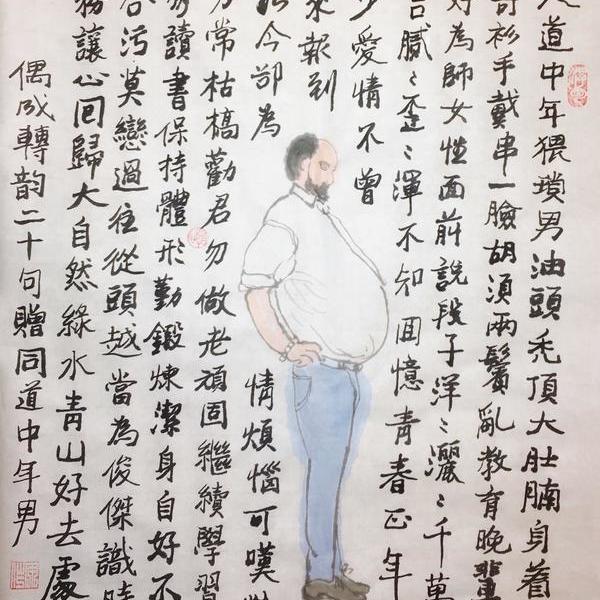 道中年猥瑣男油頭禿頂大肚腩身着
衫手戴串一臉胡須兩鬢亂教育晚輩
好為師女性面前說段子洋〻灑〻千萬
言膩〻歪〻渾不知回憶青春正年
少愛情不曾
求報到
今卻為情煩惱可嘆
常枯槁勸君勿做老頑固繼續學習
讀書保持體形勤鍛煉潔身自好不
合污莫戀過往從頭越當為俊傑識時
務讓心回歸大自然綠水青山好去處
偶成轉韵二十句贈同道中年男